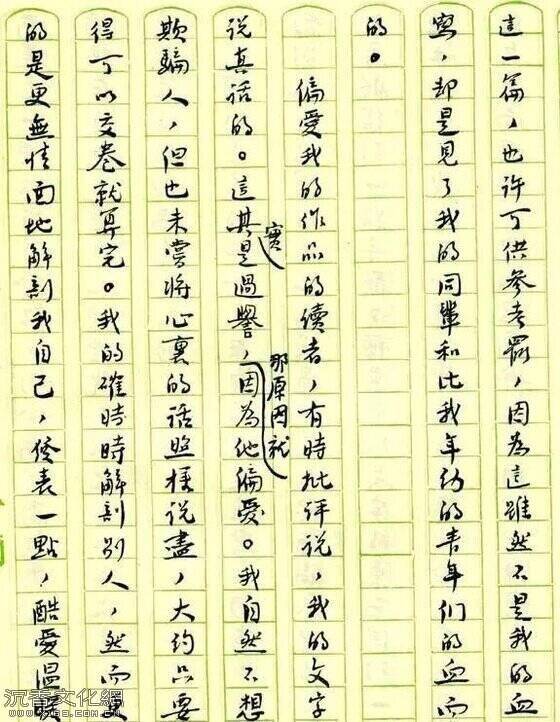 這一篇，也许可供参考罢，因為這雖然不是我的血
寫，却是見了我的同輩和比我年幼的青年们的血而
的。
偏愛我的作品的讀者，有時批评说，我的文字
说真话的。這其實是過譽，那原因就因為他偏愛。我自然不想
欺騙人，但也未嘗將心裏的话照樣说盡，大约只要
得可以交卷就算完。我的確時時解剖别人，然而更
的是更無情面地解剖我自己，發表一點，酷愛温暖
沉香文化網